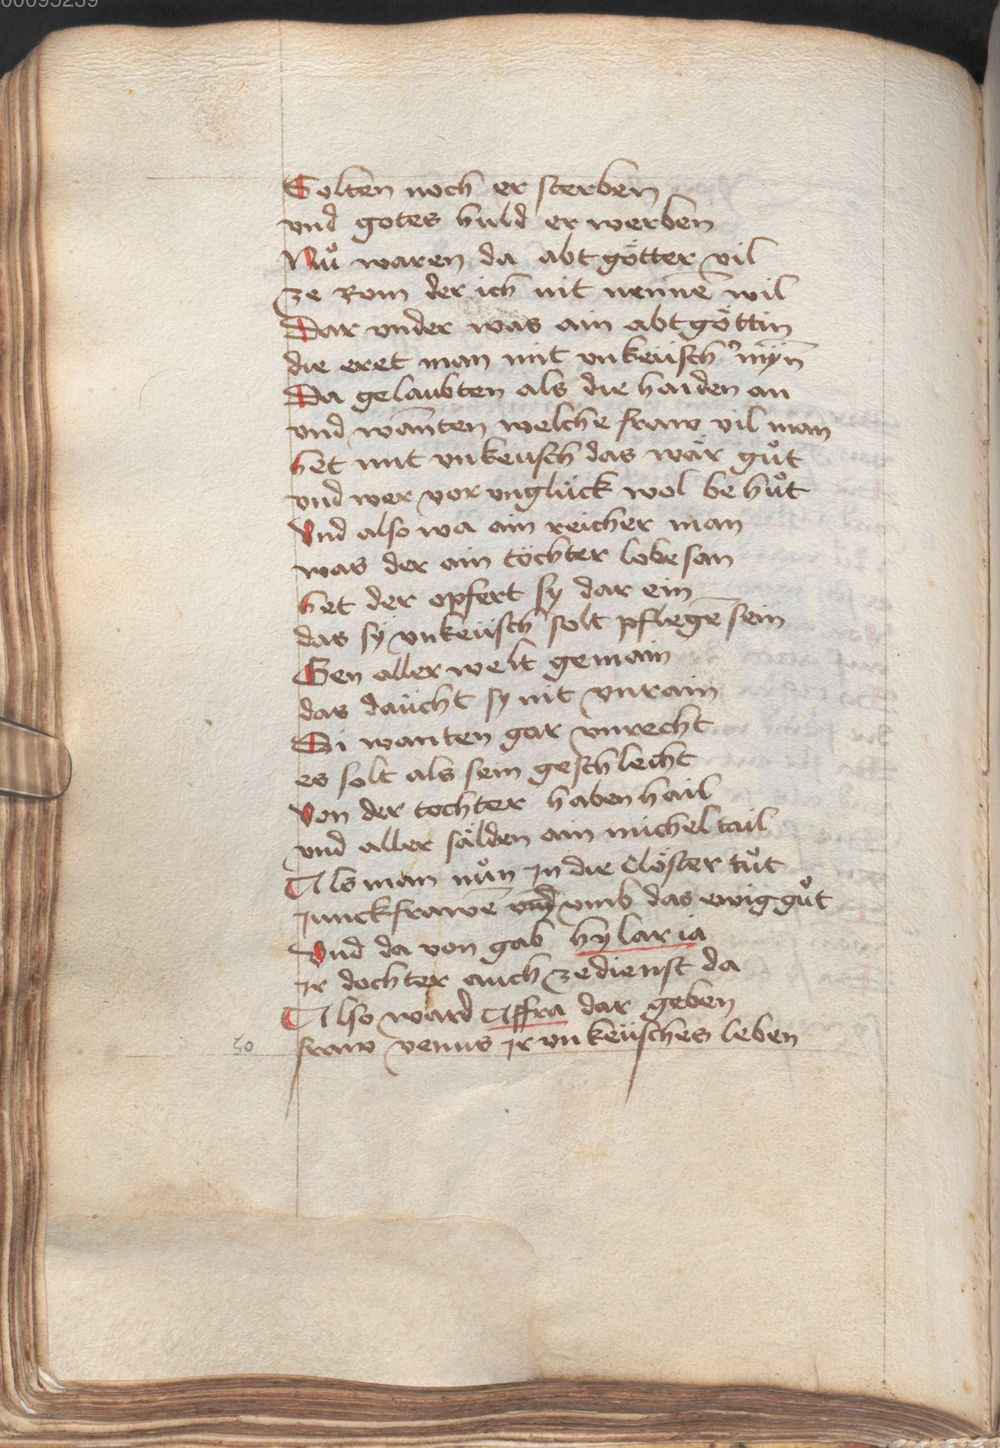 00095239
Solten noch er sterben
vnd gotes huld er werben
Nuͦ waren da abtgötter vil
ze Rom der ich nit nennē wil
Dar vnder was ain abtgöttin
die eret man mit vnkeüsch mÿn
Da gelaubten als die haiden an
vnd wānten welche fraw vil man
het mit vnkeusch das wär guͦt
vnd wer vor vnglück wol be huͦt
Vnd also wa ain reicher man
was der ain töchter lobesan
het der opfert sy dar ein
das sÿ vnkeüsch solt pflegē sein
Gen aller welt gemain
das daücht sy nit vnrain
Si wanten gar vnrecht
es solt als sein geschlecht
Von der tochter haben hail
vnd aller sälden ain michel tail
Als man nuͦn Jn die Clöster tuͦt
Junckfrawē vmb das ewig guͦt
Vnd da von gab hylaria
Jr dochter auch ze dienst da
Also ward Affra dar geben
fraw venus Jr vnkeüsches leben
50